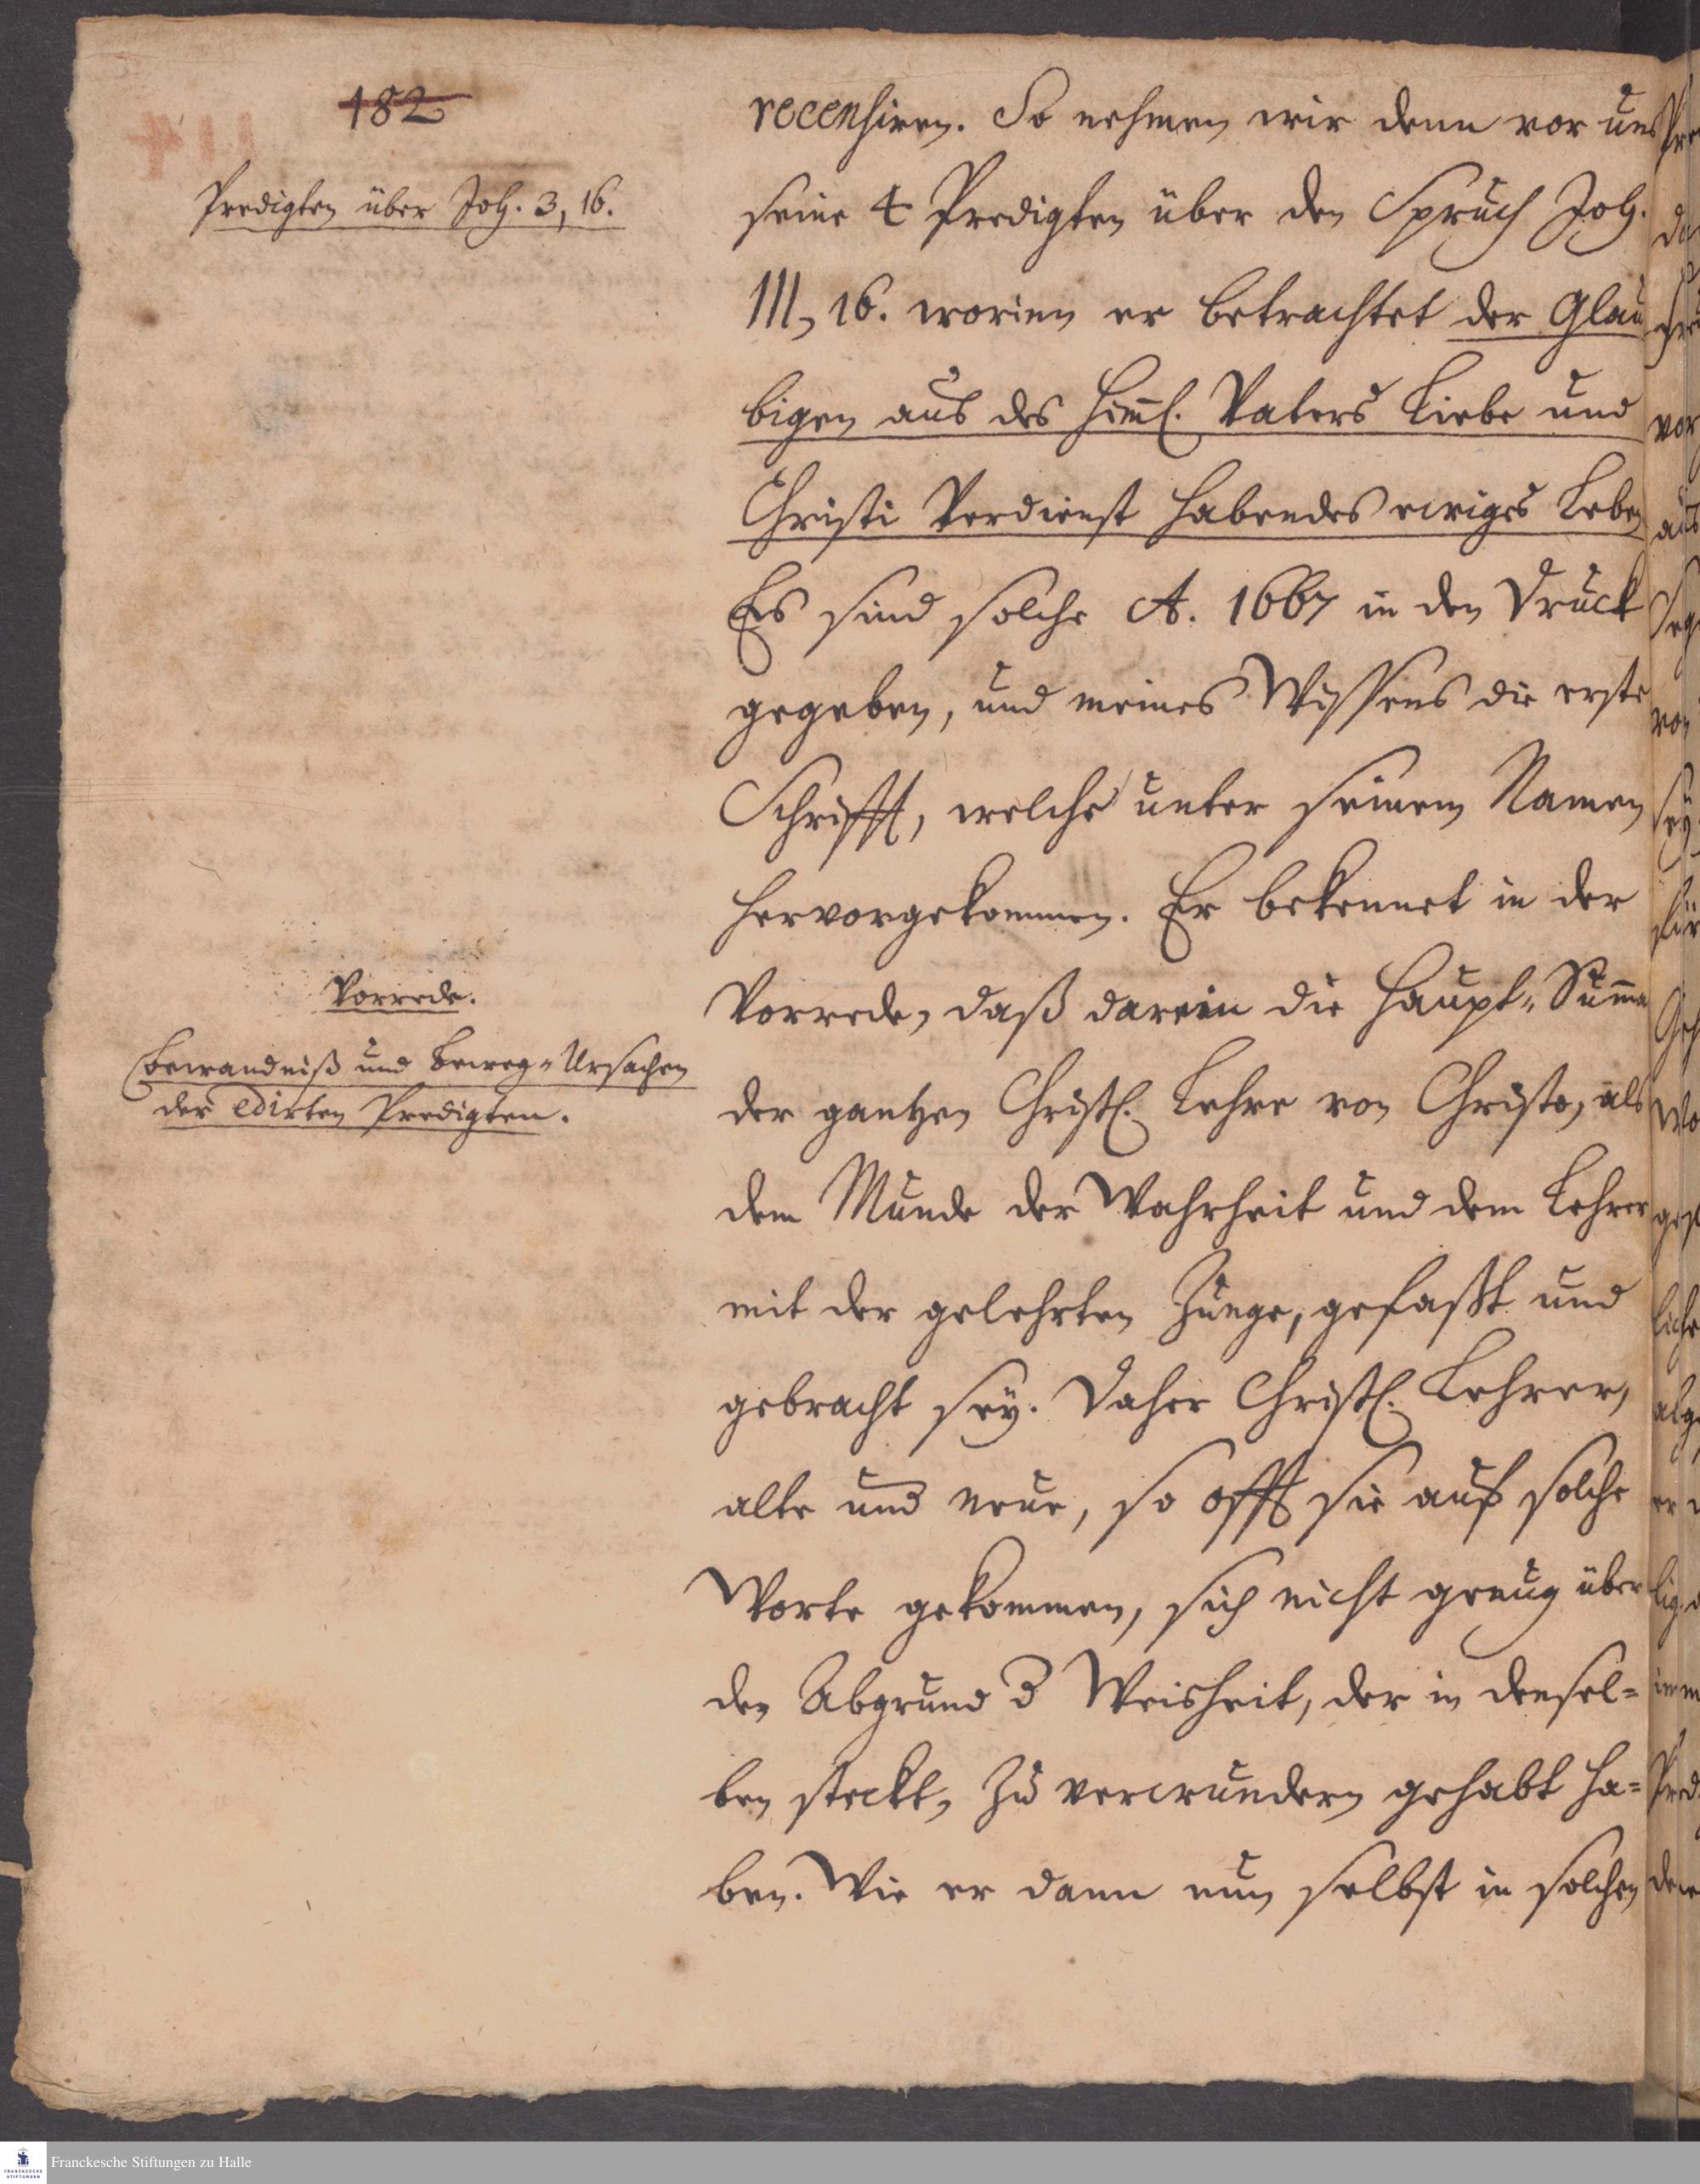 182
Predigten über Joh. 3, 16.
recensiren. So nehmen wir denn vor uns
seine 4 Predigten über den Spruch Joh.
III, 16. worinn er betrachtet der Glau
bigen aus des himl. Vaters Liebe und
Christi Verdienst habendes ewiges Leben
Es sind solche A. 1667 in den Druck
gegeben, und meines Wissens die erste
Schrifft, welche unter seinem Namen
hervorgekommen. Er bekennet in der
Vorrede.
Vorrede, daß darein die Haupt-Summa
Bewandniß und Beweg-Ursachen
der edirten Predigten.
der gantzen Christl. Lehre von Christo, als
dem Munde der Wahrheit und dem Lehrer
mit der gelehrten Zunge, gefasst und
gebracht sey. Daher Christl. Lehrer,
alte und neue, so offt sie auf solche
Worte gekommen, sich nicht gnug über
den Abgrund d Weisheit, der in densel=
ben steckt, zu verwundern gehabt ha=
ben. Wie er dann nun selbst in solchen
Franckesche Stiftungen zu Halle